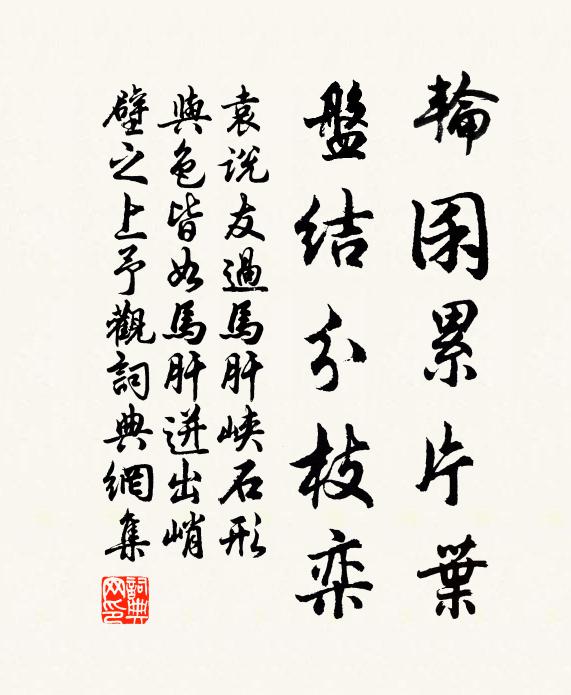 輪囷累片葉
盤結分枝奕
袁說友過馬肝峽石形
與色皆如馬肝迸出峭
壁之上予觀詞典網集
詞典網印